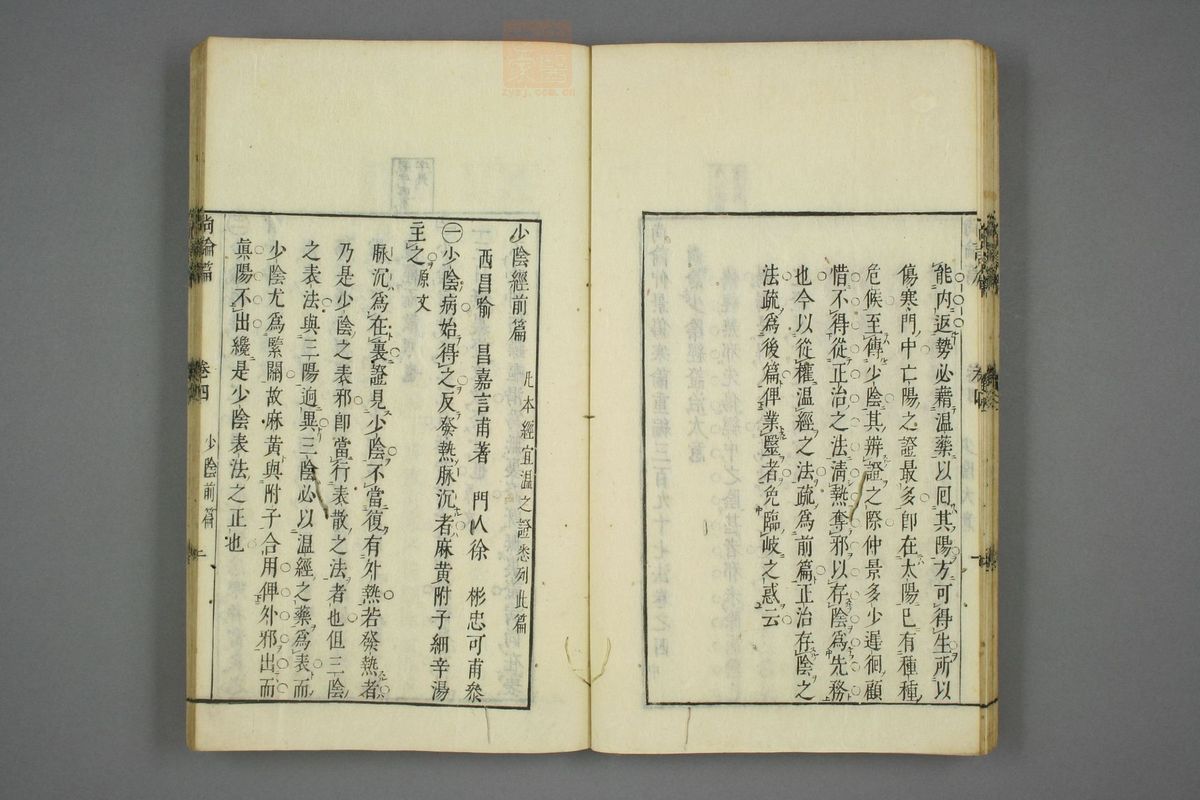 能内返勢必藉温藥以囘其陽方可得生所以
傷寒門中亡陽之證最多即在太陽已有種種
危候至傳少陰其辨證之際仲景多少遲徊顧
惜不得從正治之法清熱奪邪以存陰為先務
也今以從權温經之法疏為前篇正治存陰之
法疏為後篇俾業醫者免臨岐之惑云
少陰經前篇 凡本經宜温之證悉列此篇
西昌喻 昌嘉言甫著 門人徐 彬忠可甫叅
㊀少陰病始得之反發熱脉沉者麻黄附子細辛湯
主之原文
脉沉為在裏證見少陰不當復有外熱若發熱者
乃是少陰之表邪即當行表散之法者也但三陰
之表法與三陽迥異三陰必以温經之藥為表而
少陰尤為緊關故麻黄與附子合用俾外邪出而
眞陽不出纔是少陰表法之正也
尚論篇 卷四 少陰前篇 一
zysj.com.cn